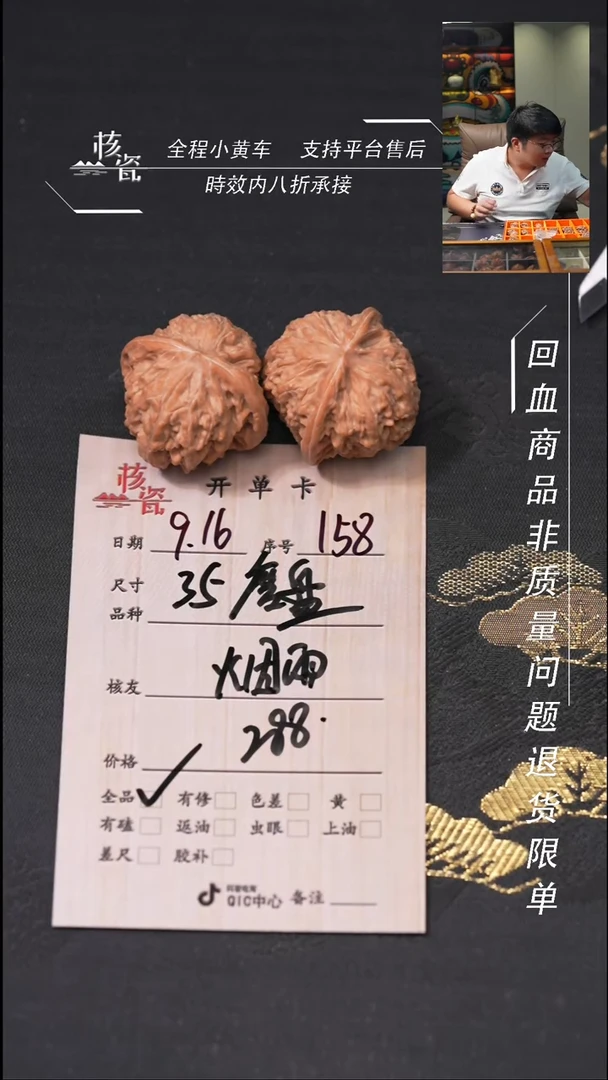 核瓷
全程小黄车 支持平台售后
時效内八折承接
回血商品非质量问题退货限单
核瓷
开单卡
日期 9.16 序号 158
尺寸 35 磨盘
品种
核友 烟雨
298.
价格
全品 有修 色差 黄
有磕 返油 虫眼 上油
差尺 胶补
抖音电商
QIC中心 备注